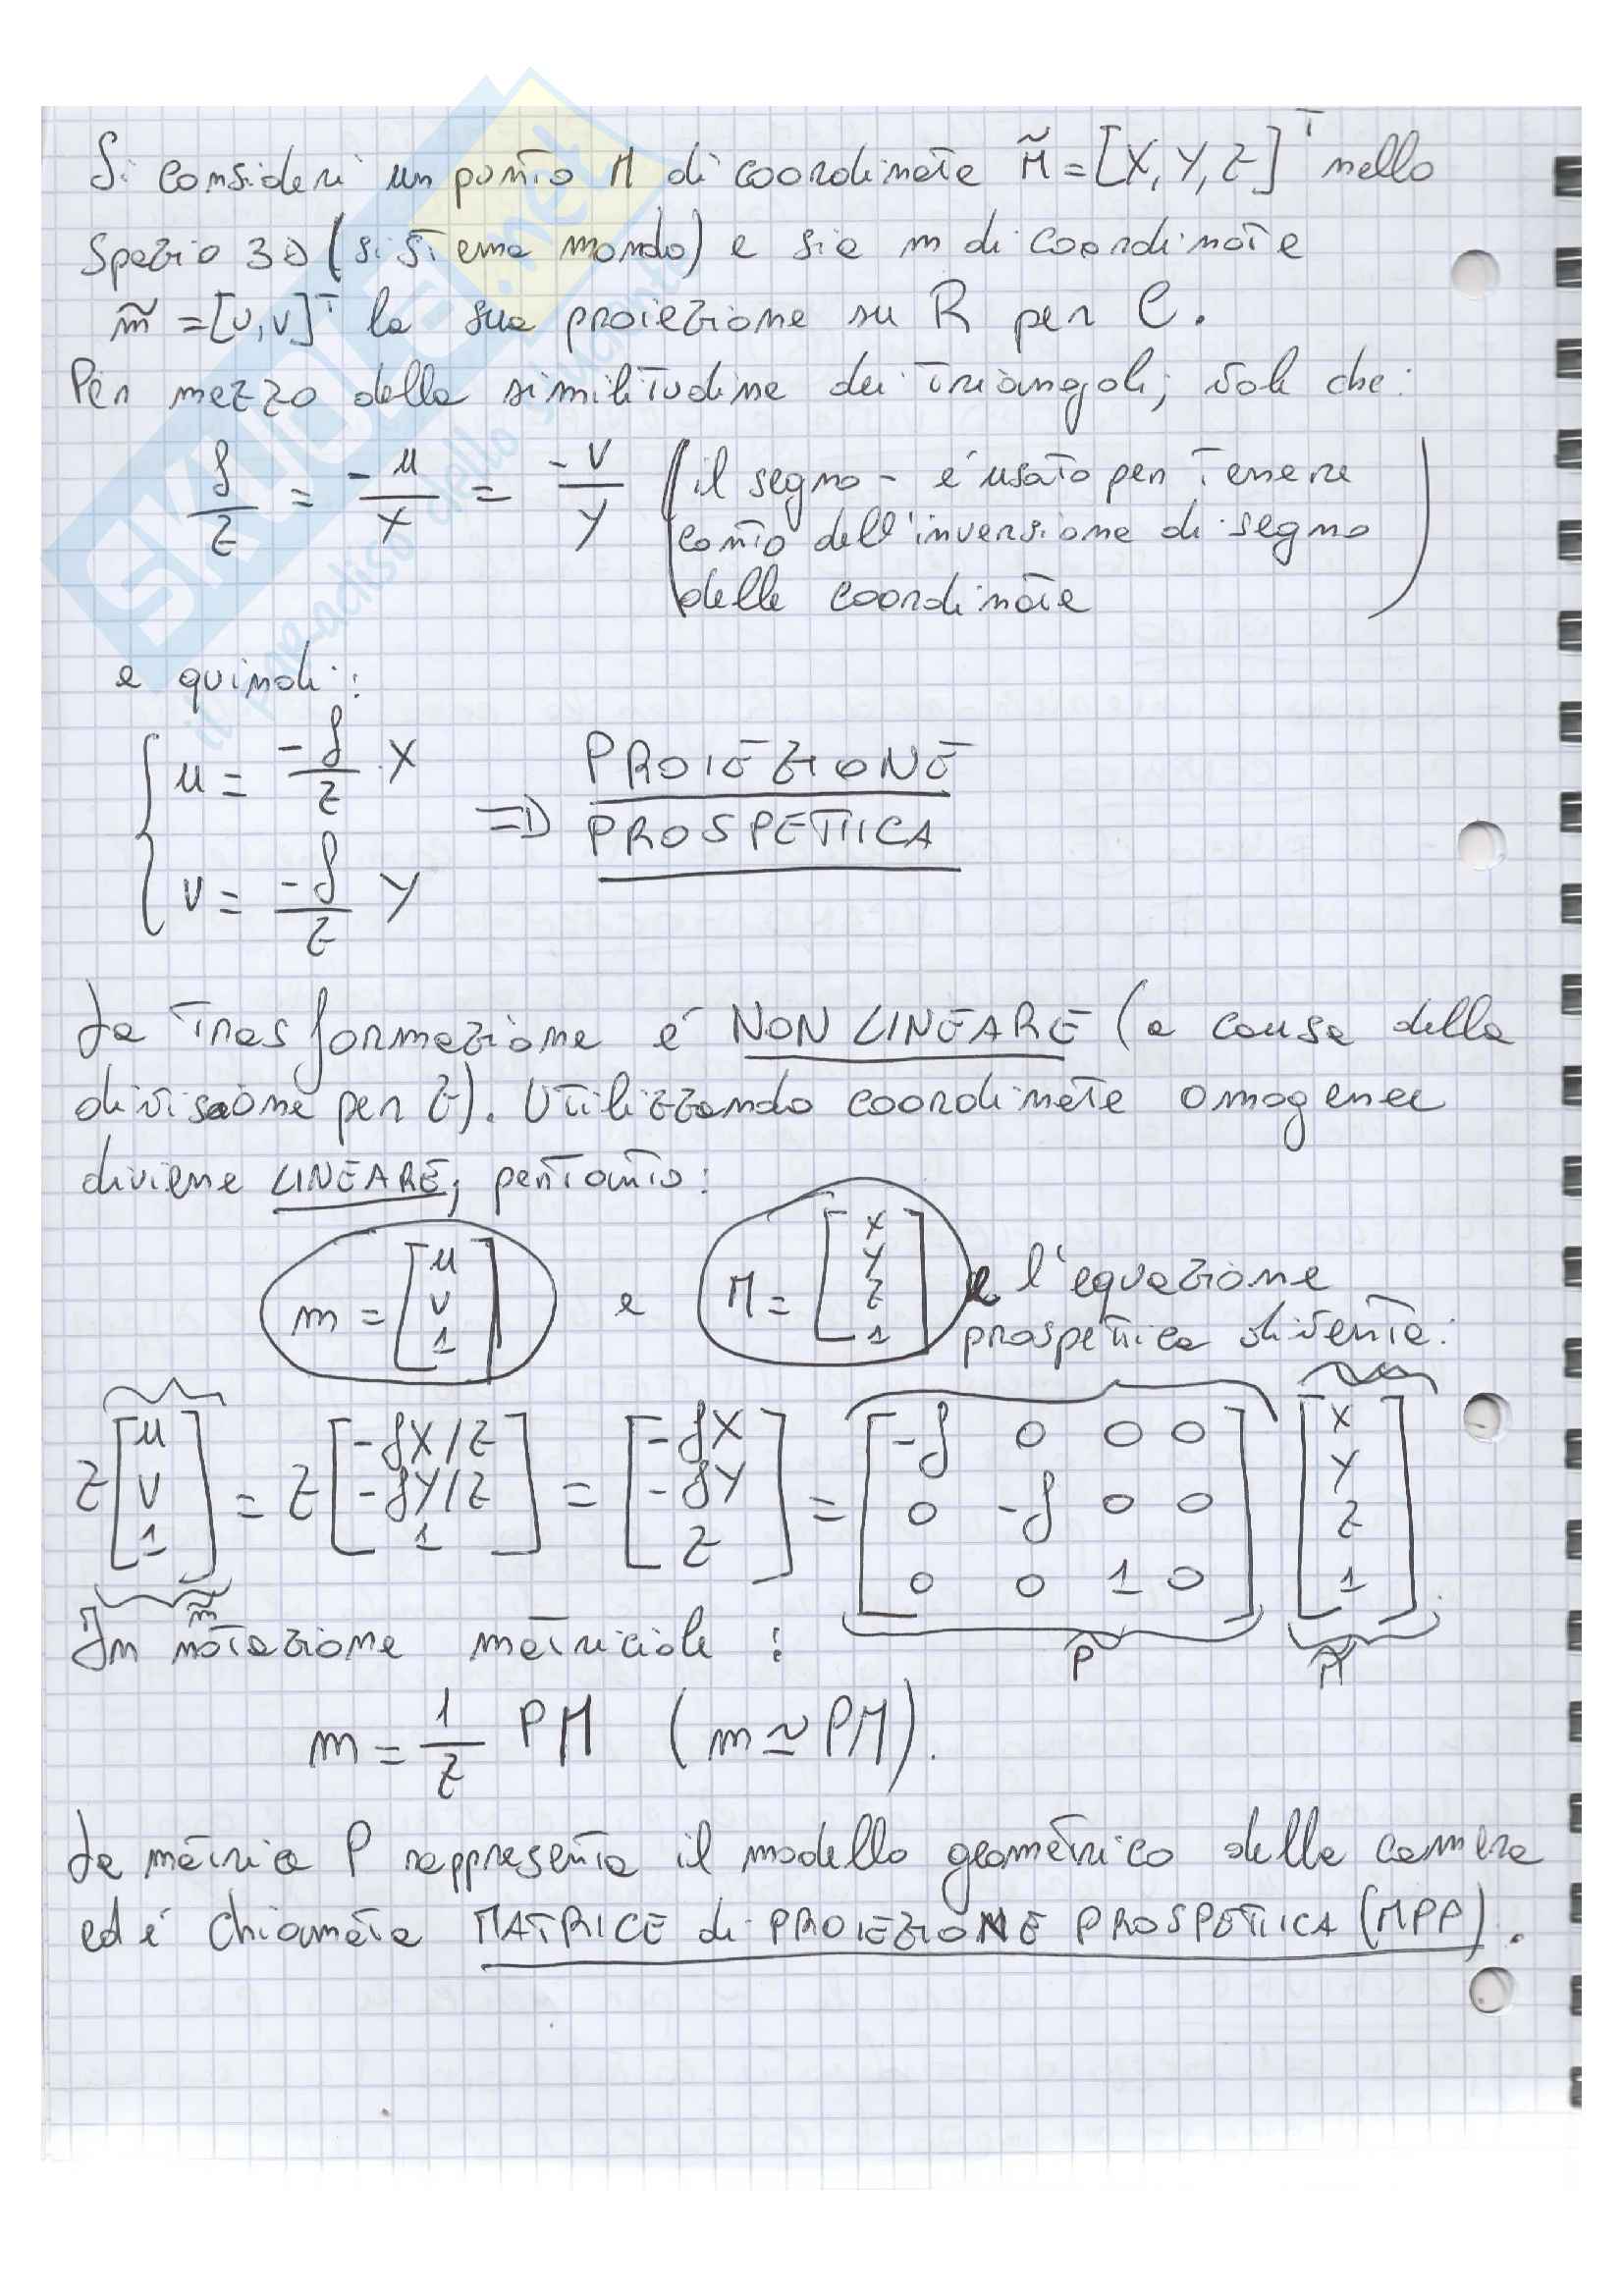 Si consideri un punto M di coordinate M̃ = [X, Y, Z]ᵀ nello
spazio 3D (sistema mondo) e sia m di coordinate
m̃ = [u, v]ᵀ la sua proiezione su R per C.
Per mezzo della similitudine dei triangoli, vale che:
f/Z = -u/X = -v/Y (il segno - è usato per tenere
conto dell'inversione di segno
delle coordinate)
e quindi:
{ u = -f/Z · X
=> PROIEZIONE
PROSPETTICA
v = -f/Z Y
La trasformazione è NON LINEARE (a causa della
divisione per Z). Utilizzando coordinate omogenee
diviene LINEARE, pertanto:
m = [u v 1] e M = [X Y Z 1] e l'equazione
prospettica diventa:
Z [u v 1] = Z [-fX/Z -fY/Z 1] = [-fX -fY Z] = [-f 0 0 0 0 -f 0 0 0 0 1 0] [X Y Z 1]
m̃ P M̃
In notazione matriciale :
m = 1/Z PM (m ≃ PM).
La matrice P rappresenta il modello geometrico della camera
ed è chiamata MATRICE di PROIEZIONE PROSPETTICA (MPP).
SKUOLA.net
il paradiso dello studente